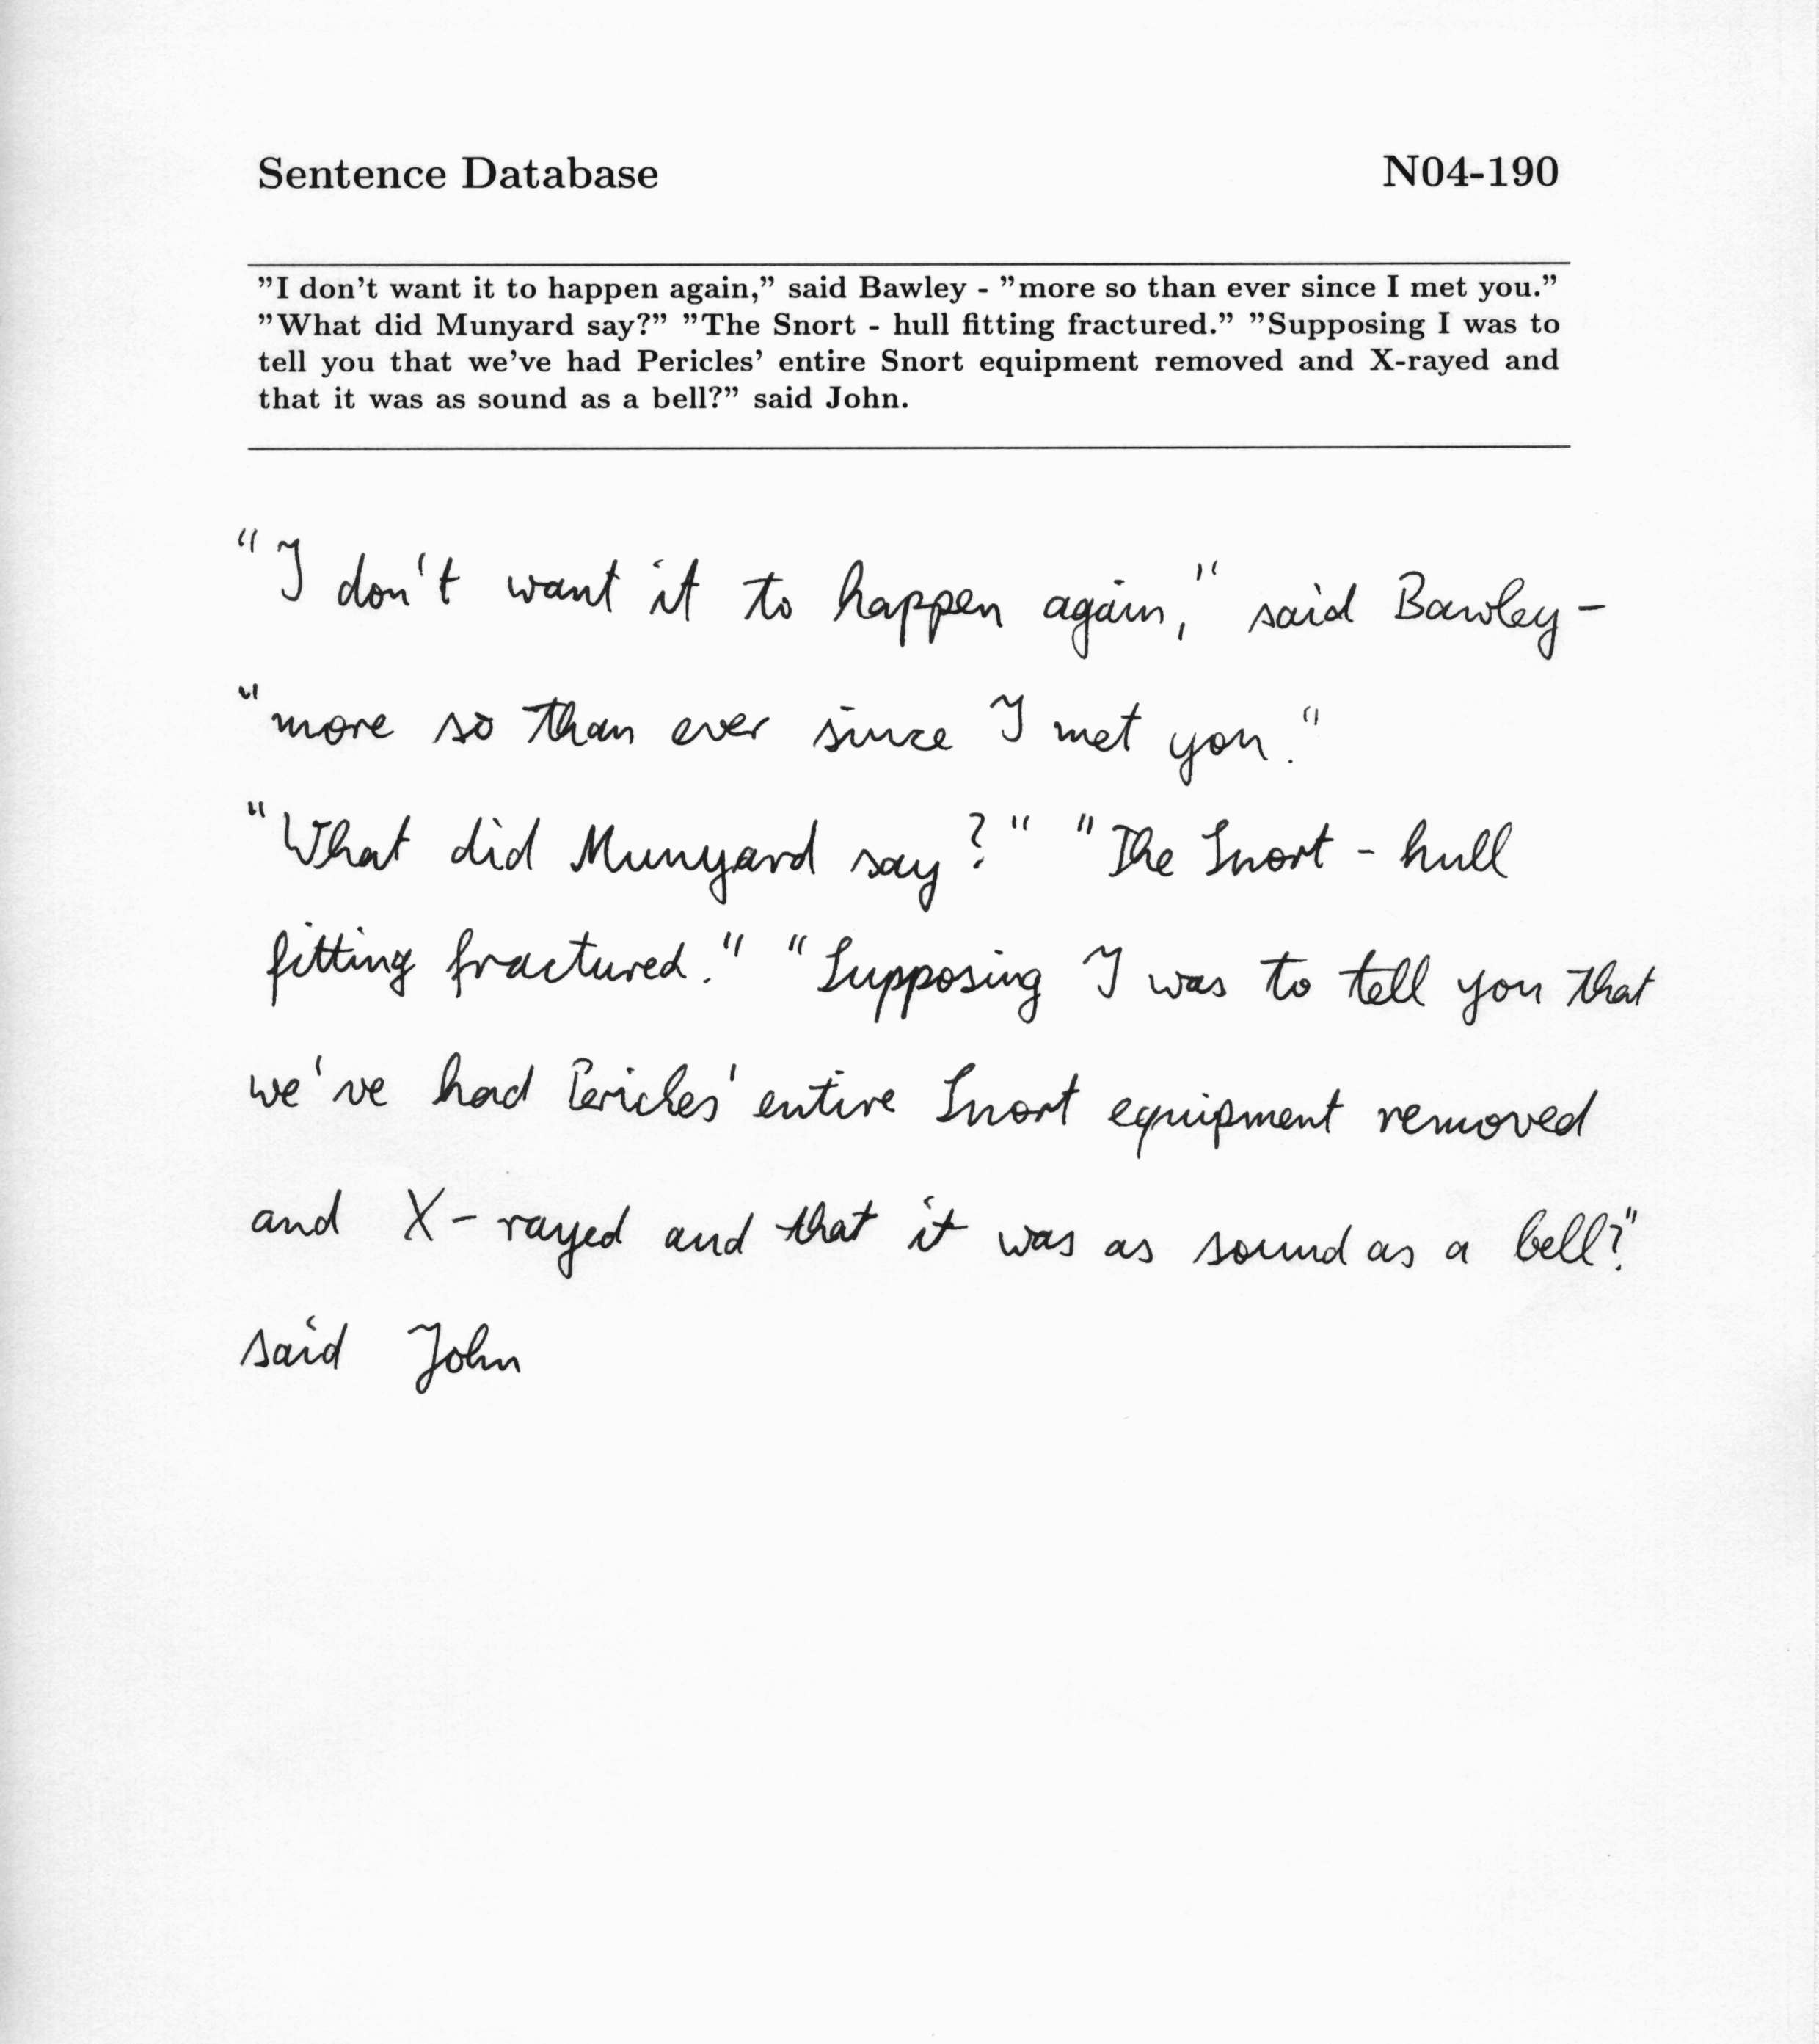 Sentence Database N04-190
”I don’t want it to happen again,” said Bawley - ”more so than ever since I met you.”
”What did Munyard say?” ”The Snort - hull fitting fractured.” ”Supposing I was to
tell you that we’ve had Pericles’ entire Snort equipment removed and X-rayed and
that it was as sound as a bell?” said John.
"I don't want it to happen again," said Bawley -
"more so than ever since I met you."
"What did Munyard say?" "The Snort - hull
fitting fractured." "Supposing I was to tell you that
we've had Pericles' entire Snort equipment removed
and X-rayed and that it was as sound as a bell?"
said John